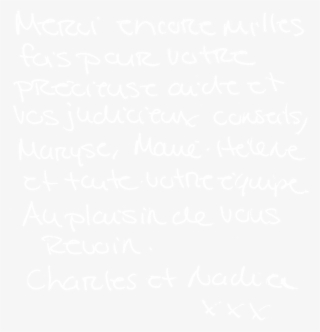 Merci encore milles
fois pour votre
précieuse aide et
vos judicieux conseils,
Maryse, Marie-Hélène
et toute votre équipe
Au plaisir de vous
Revoir.
Charles et Nadia
xxx